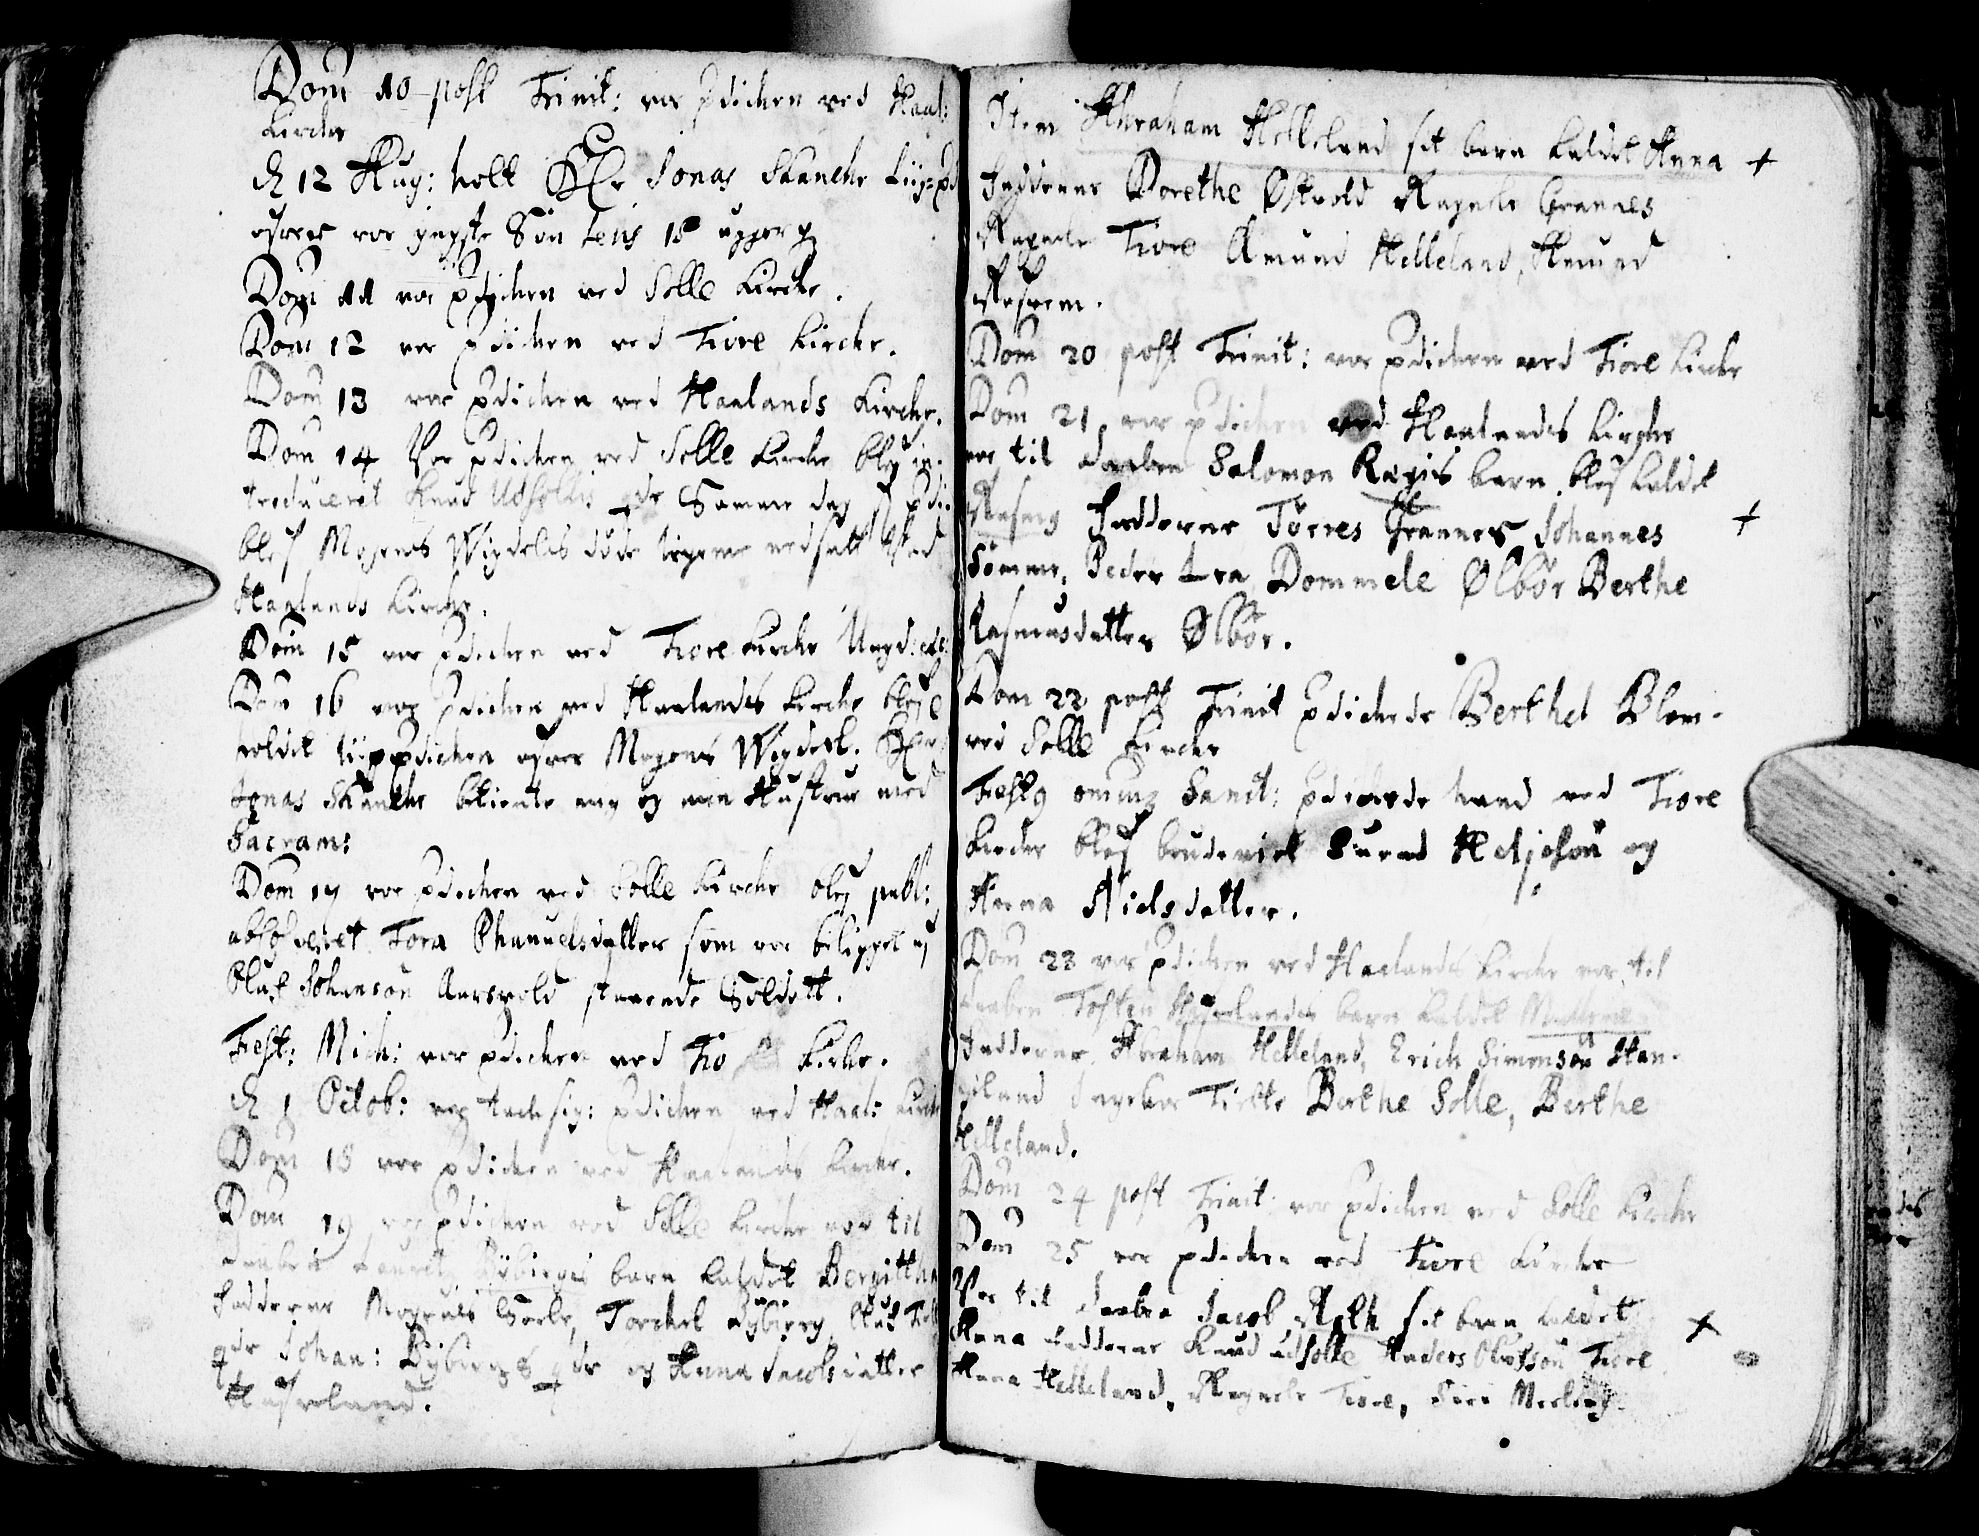 Dom 10 post Trinit: var prdicken ved Haal:
Kircke
d 12 Aug: holt Hr Jonas Skancke Liigpr
ofver vor yngste Søn Jens 18 uger g
Dom 11 var prdicken ved Solle Kircke.
Dom 12 var prdicken ved Tiore Kircke.
Dom 13 var prdicken ved Haalands Kircke.
Dom 14 Var prdicken ved Solle Kircke blef in-
troduceret Knud Udsollis qde Samme dag f pdi
blef Mogens Wigdels døde legeme nedsatt ved
Haalands Kircke.
Dom 15 var prdicken ved Tiore Kircke Ungd:
Dom 16 var prdicken ved Haalandes Kircke blef
holdet liigprdicken ofver Mogens Wigdel. Hr
Jonas Skancke betiente mig og min Hustrue med
Sacram:
Dom 17 var prdicken ved Solle Kircke blef publ:
absolveret Tora Phanuelsdatter som var beligget af
Oluf Johansøn Aarsvold Soldatt.
Fest: Mich: var prdicken ved Tio Kircke.
d 1 Octob: var tacksig: prdicken ved Haal: Kircke
Dom 18 var prdicken ved Haalands Kircke.
Dom 19 var prdicken ved Solle Kircke var til
daaben Lauritz Rÿbiergs barn kaldet Bergitha
Fadderne Mogens Sørle, Torckel Rÿbierg Oluf
qde Johan: Rÿbiergs qde og Anna Jacobsdatter
Hafrland.
Item Abraham Helleland sit barn kaldet Anna +
Fadderne Dorethe Østvold Ragnele Grannes
Ragnele Tiore Amund Helleland, Amund
Refsem.
Dom 20 post Trinit: var prdicken ved Tiore Kircke
Dom 21 var prdicken ved Haalandes Kircke
var til daaben Salomon Rægis barn blef kaldet
Rasmg Fadderne Tørres Grannes Johannes +
Sømme, Peder Lea Dommele Ølbør Berthe
Rasmusdatter Ølbør.
Dom 22 post Trinit prdickede Berthel Blom-
ved Solle Kircke
Festo omnium Sanct: prdickede hand ved Tiore
Kircke blef brudeviet Suend Heljesøn og
Anna Nielsdatter.
Dom 23 var prdicken ved Haalandes Kircke var til
daaben Tosten Hafrlandes barn kaldet
Fadderne Abraham Helleland, Erich Simonsøn Stan-
geland Ingebor Tielte Berthe Solle, Berthe
Helleland.
Dom 24 post Trinit: var prdicken ved Solle Kircke
Dom 25 var prdicken ved Tiore Kircke
Var til daaben Jacob Ræge sit barn
Anna Fadderne Knud Udsolle Anders Olufsøn Tiore +
Anna Helleland, Ragnele Tiore, Siri Meeling.